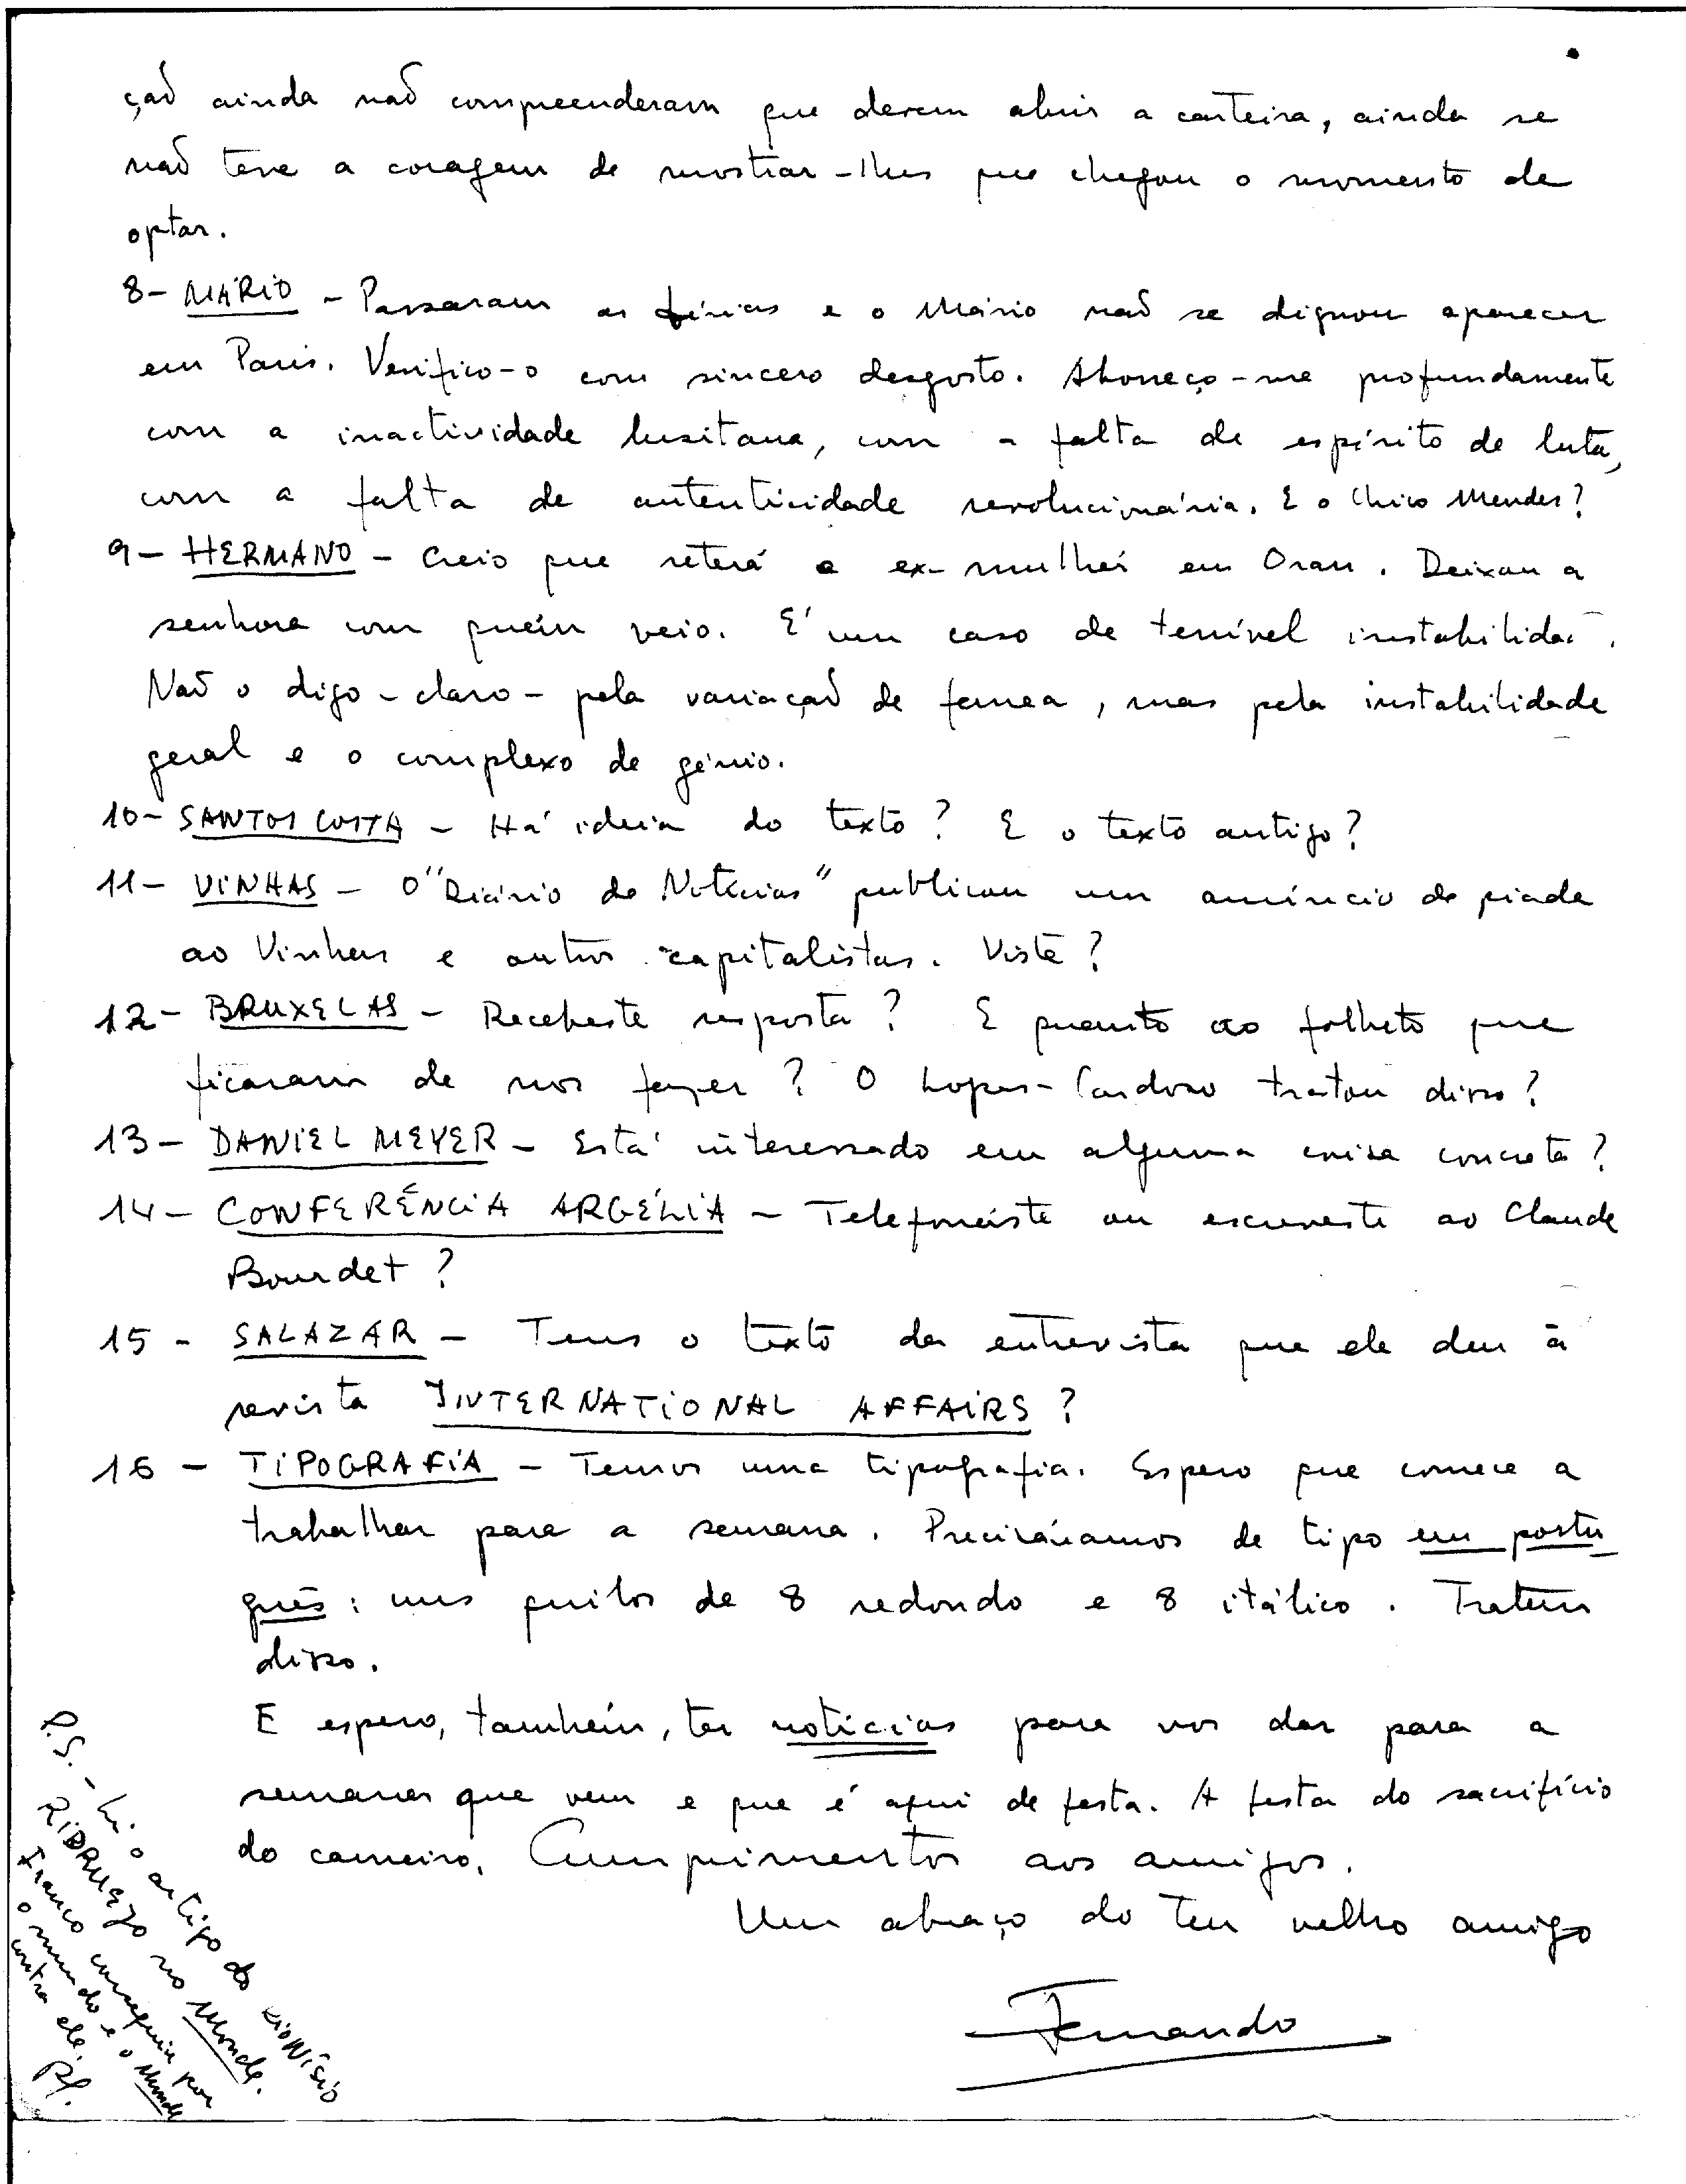 ção ainda não compreenderam que devem abrir a carteira, ainda se
não teve a coragem de mostrar-lhes que chegou o momento de
optar.
8- MÁRIO - Passaram as férias e o Mário não se dignou aparecer
em Paris. Verifico-o com sincero desgosto. Aborreço-me profundamente
com a inactividade lusitana, com a falta de espírito de luta,
com a falta de autenticidade revolucionária. E o Chico Mendes?
9- HERMANO - Creio que reterá a ex-mulher em Oran. Deixou a
senhora com quem veio. É um caso de terrível instabilidade.
Não o digo - claro - pela variação de femea, mas pela instabilidade
geral e o complexo de génio.
10- SANTOS COSTA - Há ideia do texto? E o texto antigo?
11- VINHAS - O "Diário de Notícias" publicou um anúncio de piada
ao Vinhas e outros capitalistas. Viste?
12- BRUXELAS - Recebeste resposta? E quanto ao folheto que
ficaram de nos fazer? O Lopes-Cardoso tratou disso?
13- DANIEL MEYER - Está interessado em alguma coisa concreta?
14- CONFERÊNCIA ARGÉLIA - Telefonaste ou escreveste ao Claude
Bourdet?
15- SALAZAR - Tens o texto da entrevista que ele deu à
revista INTERNATIONAL AFFAIRS?
16- TIPOGRAFIA - Temos uma tipografia. Espero que comece a
trabalhar para a semana. Precisávamos de tipo em portu
guês: uns quilos de 8 redondo e 8 itálico. Tratem
disso.
E espero, também, ter notícias para vos dar para a
semana que vem e que é aqui de festa. A festa do sacrifício
do carneiro. Cumprimentos aos amigos.
Um abraço do teu velho amigo
Fernando
P.S. - Li o artigo do DIONÍSIO
RIDRUEJO no Monde.
Franco conseguiu por
o mundo e o Monde
contra ele.